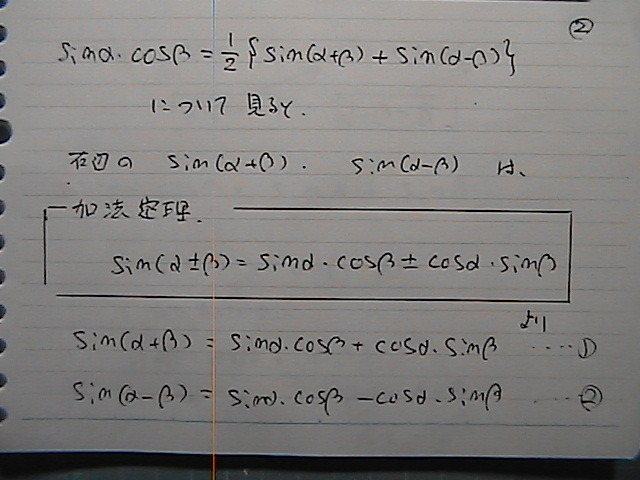 ②
sinα・cosβ = 1/2 {sin(α+β) + sin(α-β)}
について見ると.
右辺の sin(α+β). sin(α-β) は、
加法定理.
sin(α±β) = sinα・cosβ ± cosα・sinβ
より
sin(α+β) = sinα・cosβ + cosα・sinβ ‥‥①
sin(α-β) = sinα・cosβ - cosα・sinβ ‥‥②